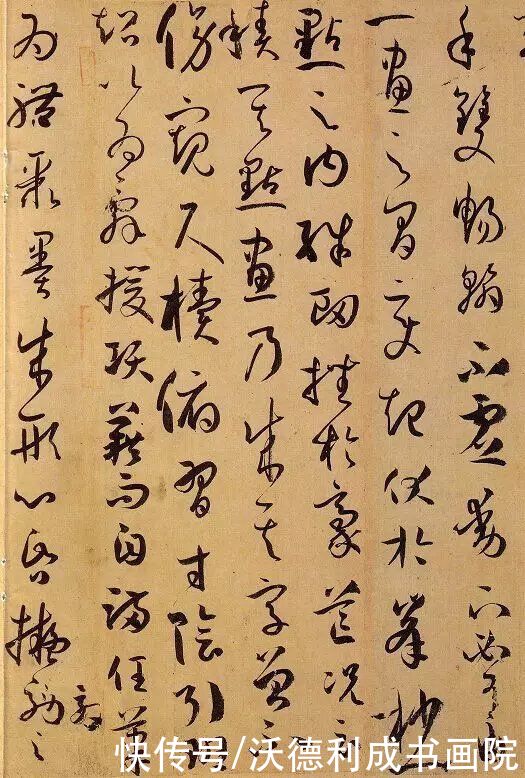 手雙暢翰不虛動下必有由
一畫之間變起伏於峯杪
點之內殊衄挫於豪芒況云
積其點畫乃成其字曾不
傍窺尺牘俯習寸陰引班
超以為辭援項籍而自滿任筆
為體聚墨成形心昏擬效之
快传号/沃德利成书画院